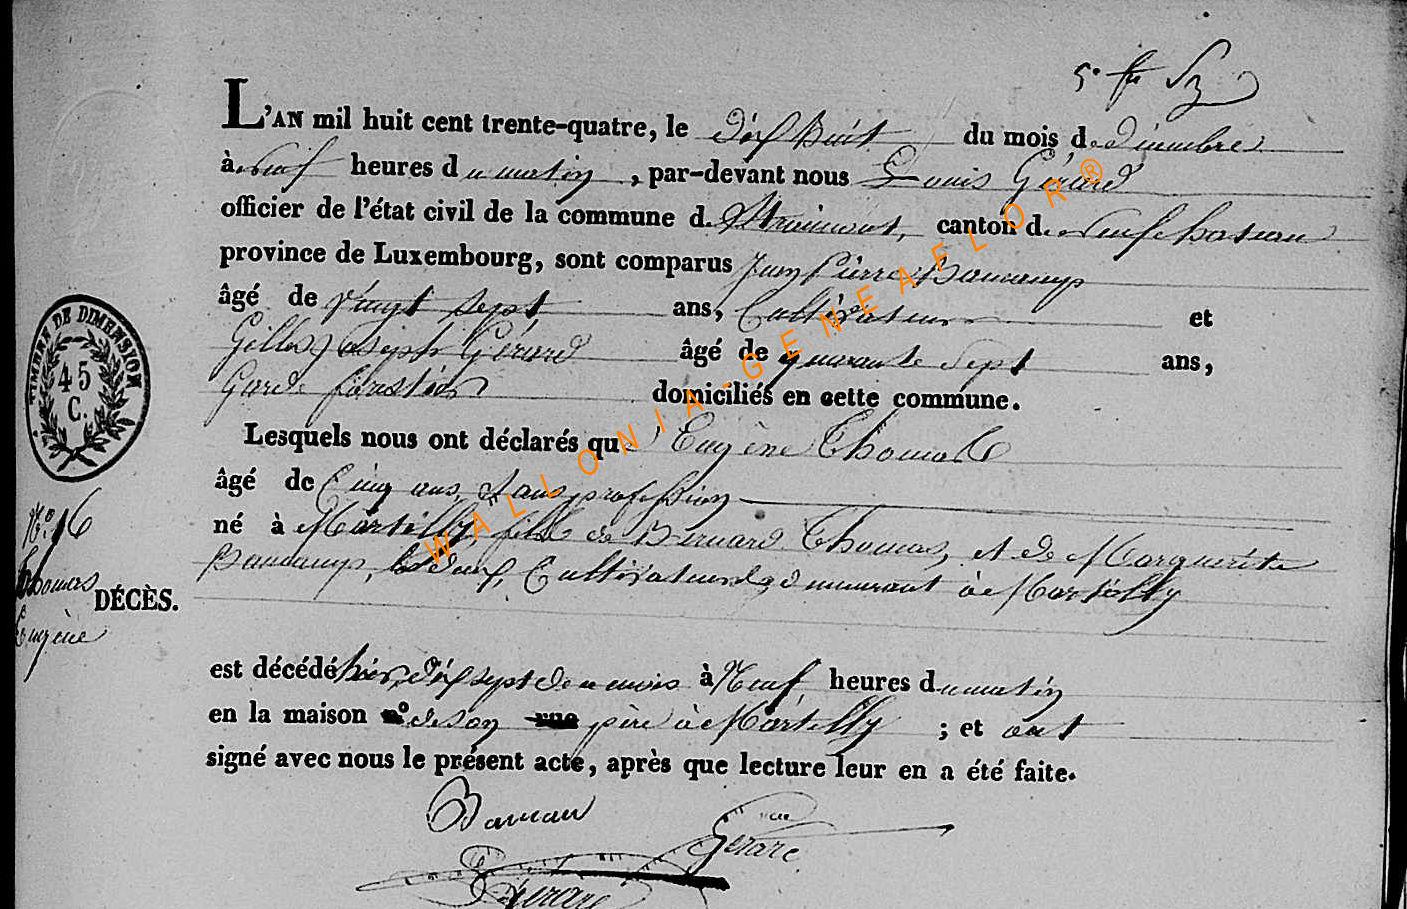 L'AN mil huit cent trente-quatre, le dix huit du mois de décembre
à neuf heures du matin, par-devant nous Louis Gérard
officier de l'état civil de la commune de Straimont, canton de neufchateau
province de Luxembourg, sont comparus Jean Pierre Baucamp
âgé de vingt sept ans, Cultivateur et
Gilles Joseph Gérard âgé de quarante sept ans,
Garde forestier domiciliés en cette commune.
Lesquels nous ont déclarés que Eugène Thomas
âgé de Cinq ans, sans profession
né à Martilly, fils de Bernard Thomas, et de Marguerite
Baucamp, Cultivateurs, demeurant à Martilly
est décédé hier, dix sept de ce mois à Neuf heures du matin
en la maison n° de son rue père à Martilly ; et ont
signé avec nous le présent acte, après que lecture leur en a été faite.
TIMBRE DE DIMENSION
45
C.
N° 16
Thomas
Eugène
DÉCÈS.
Gérard
Gérard
WALLONIA-GENEAFLOR®